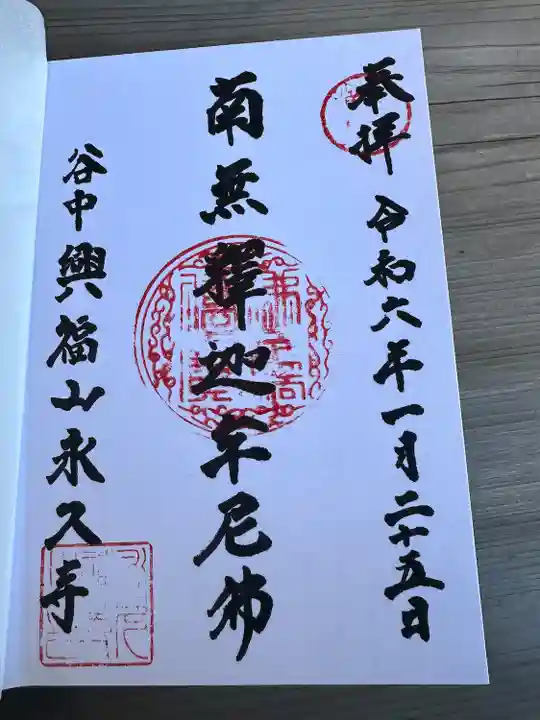 奉拝 令和六年一月二十五日
南無釋迦牟尼佛
谷中興福山永久寺